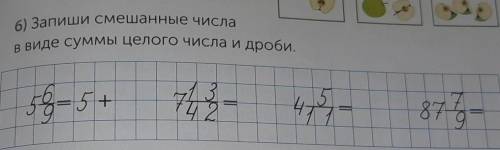 б) Запиши смешанные числа
в виде суммы целого числа и дроби.
5 6/9 = 5 + 7 13/42 = 4 5/11 = 87 7/9 =